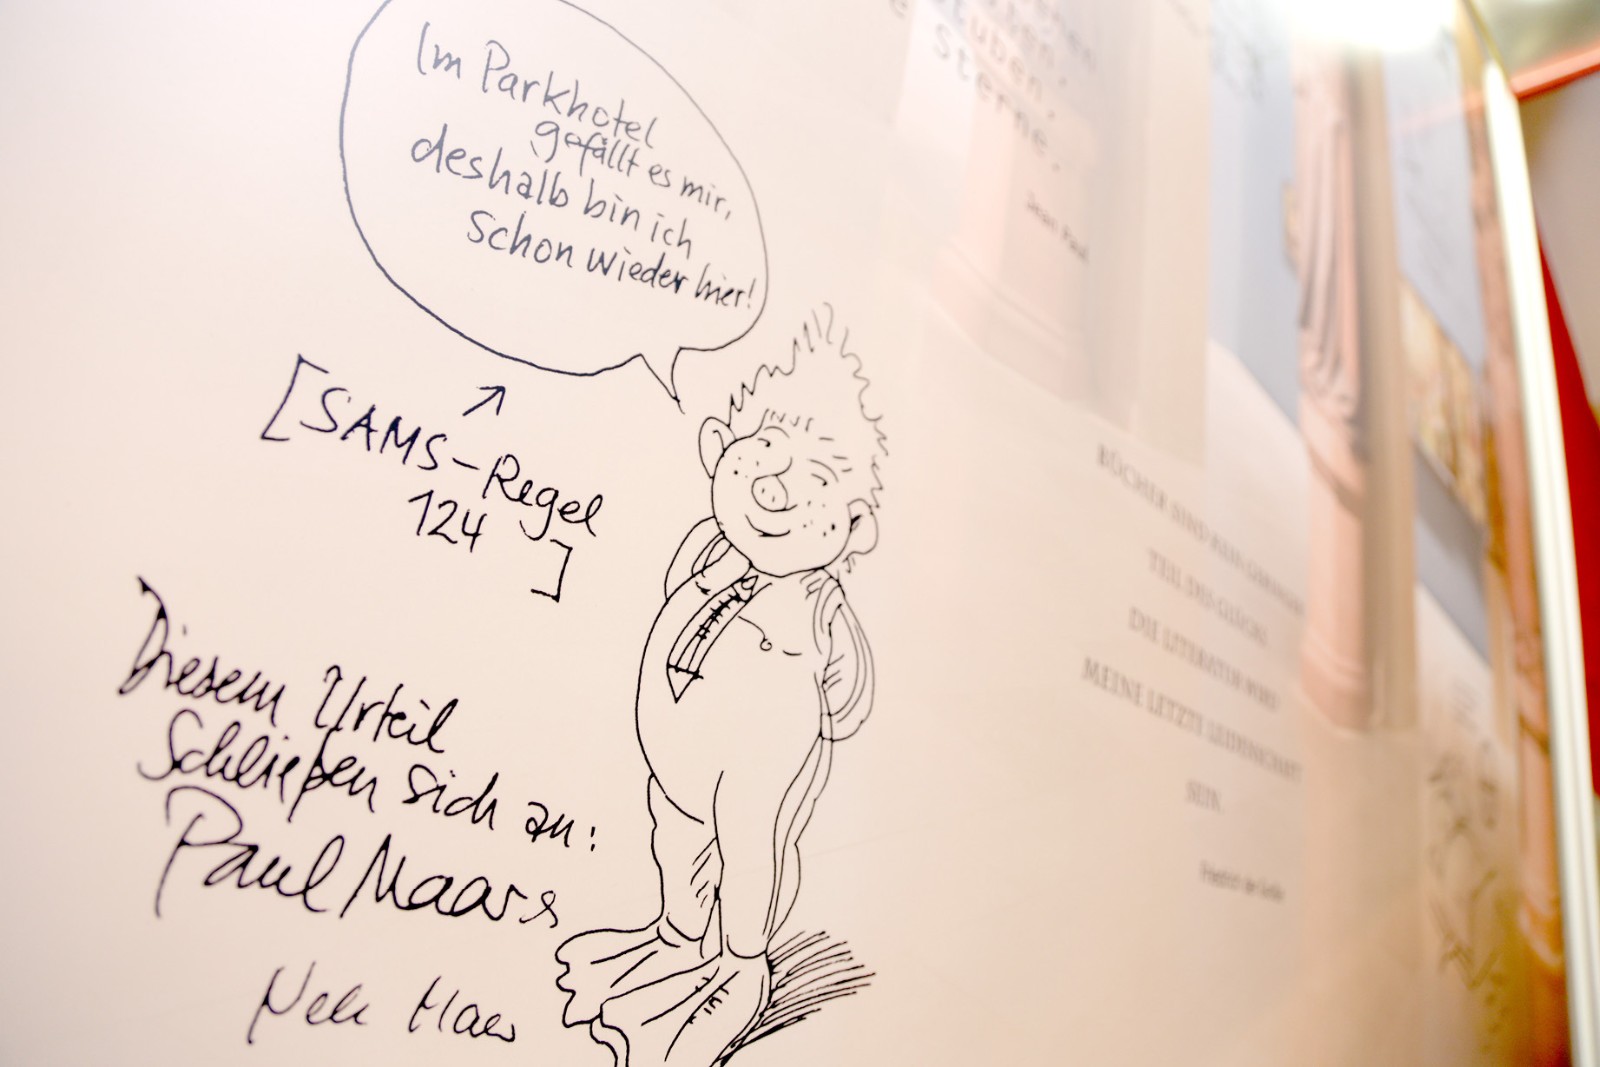 Im Parkhotel
gefällt es mir,
deshalb bin ich
schon wieder hier!
[SAMS-Regel
124
]
Diesem Urteil
schließen sich an:
Paul Maars
Sterne.
Jean Paul
BÜCHER SIND KEIN GERINGER
TEIL DES GLÜCKS
DIE LITERATUR WIRD
MEINE LETZTE LEIDENSCHAFT
SEIN.